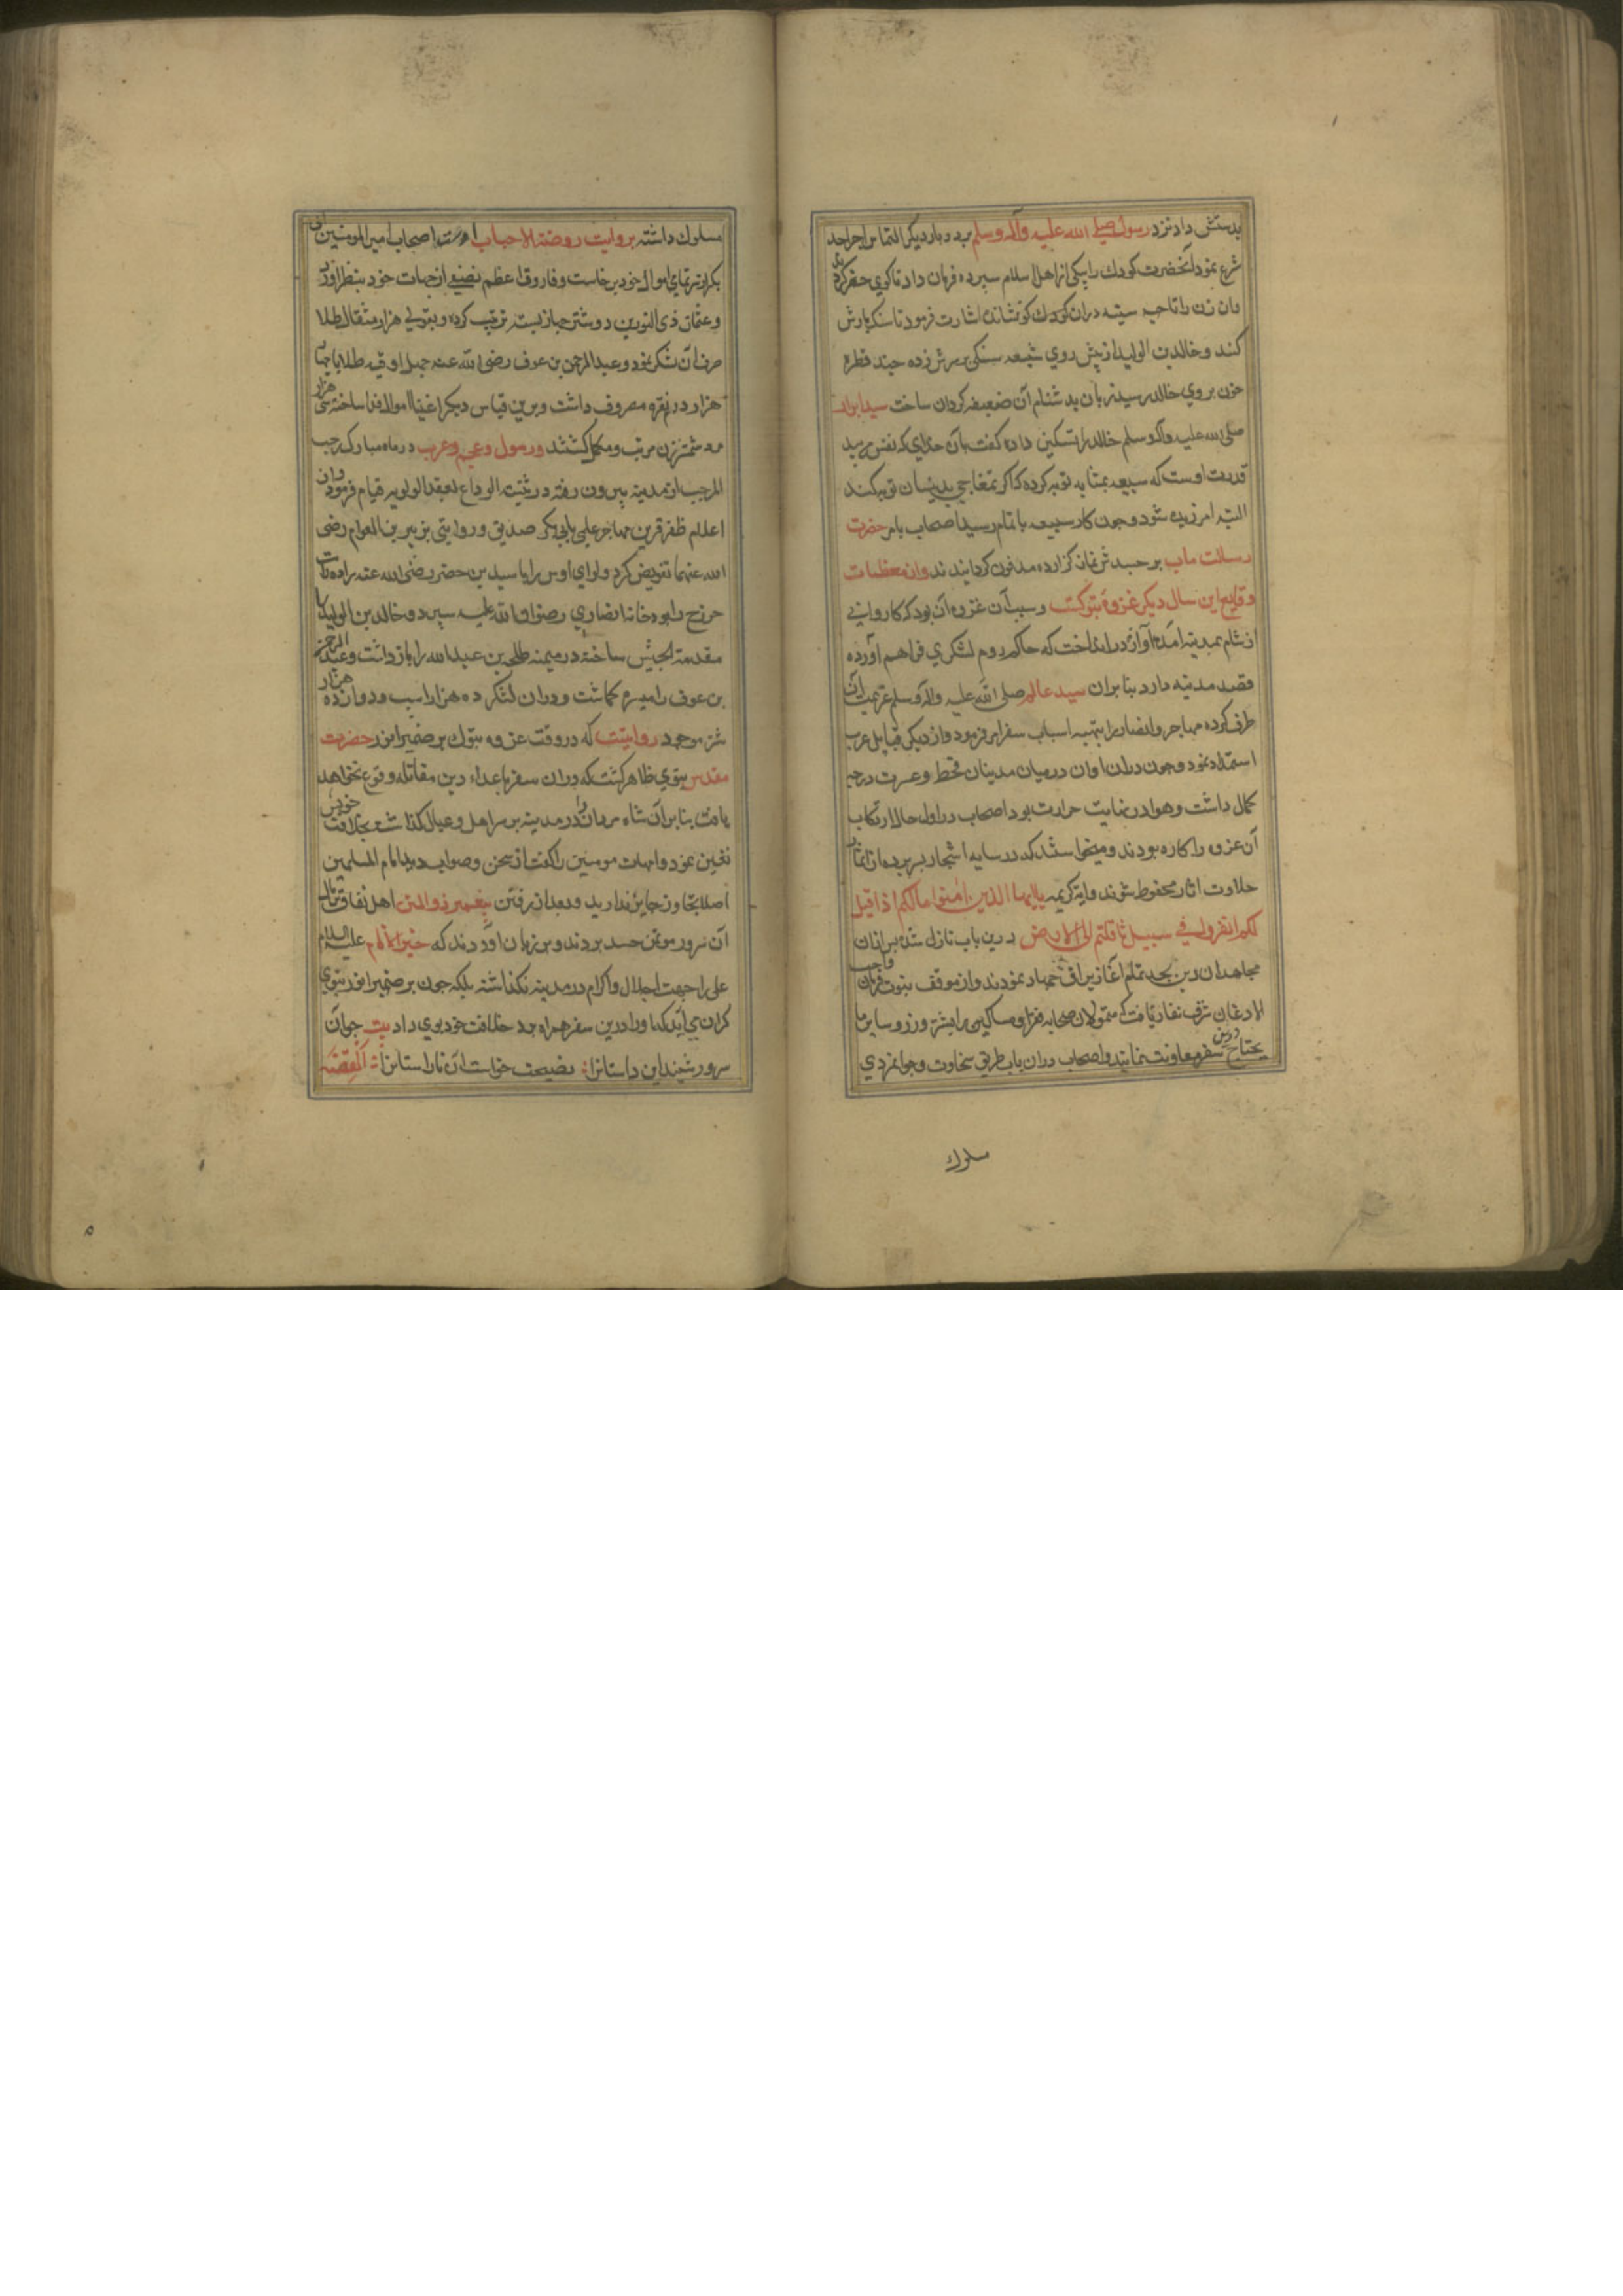 بدستش داد نزد رسول صلی الله علیه وآله وسلم برد و بار دیگر التماس اجراء حد
شرع نمود آنحضرت کودك را بیکی از اهل اسلام سپرده فرمان داد تا کوی حفر کردند
وان زن را تا حیه سینه دران کودك کو نشانده اشارت فرمود تا سنکبارش
کنند و خالد بن الولید از پیش روی سبیعه سنکی بر سرش زده چند قطره
خون بروی خالد رسید زبان بدشنام آن ضعیفه کردان ساخت سید ابرار
صلی الله علیه وآله وسلم خالد را تسکین داده کفت بآن خدای که نفس من بید
قدرت اوست که سبیعه بمثابه توبه کرده که اکر تمغاجی بدینسان توبه کند
البته امرزیده شود وچون کار سبیعه باتمام رسید اصحاب بامر حضرت
رسالت ماب بر جسدش نماز کزارده مدفون کردانیدند وان معظمات
وقایع این سال دیکر غزوه تبوکست وسبب آن غزوه آن بود که کاروانی
از شام بمدینه آمده آوازه در انداخت که حاکم روم لشکری فراهم آورده
قصد مدینه دارد بنابران سید عالم صلی الله علیه وآله وسلم عزیمت آن
طرف کرده مهاجر وانصار را بتهیه اسباب سفر امر فرمود واز دیکر قبایل عرب
استمداد نمود وچون دران اوان درمیان مدینان قحط وعسرت درجه
کمال داشت وهوا در نهایت حرارت بود اصحاب در اول حال از ارتکاب
آن غزوه را کاره بودند ومیخواستند که در سایه اشجار بسر برده از اثمار
حلاوت اثار محفوظ شوند وایه کریمه یا ایها الذین امنوا مالکم اذا قیل
لکم انفروا فی سبیل ثاقلتم الی الارض درین باب نازل شده بر ازان
مجاهدان دین بجد تمام آغاز یراق جهاد نمودند واز موقف نبوت فرمان واجب
الاذعان شرف نفاذ یافت که متمولان صحابه فقرا ومساکین را بشتر وزر وسایر ما
یحتاج درین سفر معاونت نمایند واصحاب دران باب طریق سخاوت وجوانمردی
سلوك
مسلوك داشته بروایت روضة الاحباب اصحاب امیر المومنین ابی
بکر از سر تمامی اموال خود برخاست وفاروق اعظم نصفی از جهات خود بنظر انور
وعثمان ذی النورین دو شتر جهاز بسته ترتیب کرده وبقولی هزار مثقال طلا
صرف آن لشکر نمود وعبد الرحمن بن عوف رضی الله عنه چهل اوقیه طلا یا چهار
هزار درم نقره مصروف داشت وبرین قیاس دیکر اغنیا اموال فدا ساخته سی هزار
مرد شمشیرزن مرتب ومکمل کشتند ورسول وعجم وعرب در ماه مبارك رجب
المرجب از مدینه بیرون رفته در ثنیت الوداع لعقد الولویه قیام فرمود وان
اعلام ظفر قرین مهاجر علمی بابی بکر صدیق وروایتی بزبیر بن العوام رضی
الله عنهما تفویض کرد ولوای اوس را باسید بن حضیر رضی الله عنه داده رایت
خزرج را بدوجانه انصاری رضوان الله علیه سپرد وخالد بن الولید را
مقدمة الجیش ساخته در میمنه طلحه بن عبد الله را بازداشت وعبد الرحمن
بن عوف را میسره کماشت ودران لشکر ده هزار اسب ودوازده هزار
شتر موجود روایتست که در وقت غزوه تبوك بر ضمیر انور حضرت
مقدس نبوی ظاهر کشت که دران سفر باعداء دین مقاتله وقوع نخواهد
یافت بنابر آن شاه مردان را در مدینه بر سر اهل وعیال کذاشته بخلافت خویش
تعیین نمود وامهات مومنین را کفت از سخن وصوابدید امام المسلمین
اصلا تجاوز جایز ندارید وبعد از رفتن پیغمبر ذوالمنن اهل نفاق بر آن
آن سرور مومن حسد بردند وبر زبان آوردند که خیر الانام علیه السلام
علی را جهت اجلال واکرام در مدینه نکذاشته بلکه چون بر ضمیر انور نبوی
کران می آید که او را درین سفر همراه برد خلافت خود بوی داد بیت چوآن
سرور شنید این داستانرا نصیحت خواست آن ناراستانرا القصه